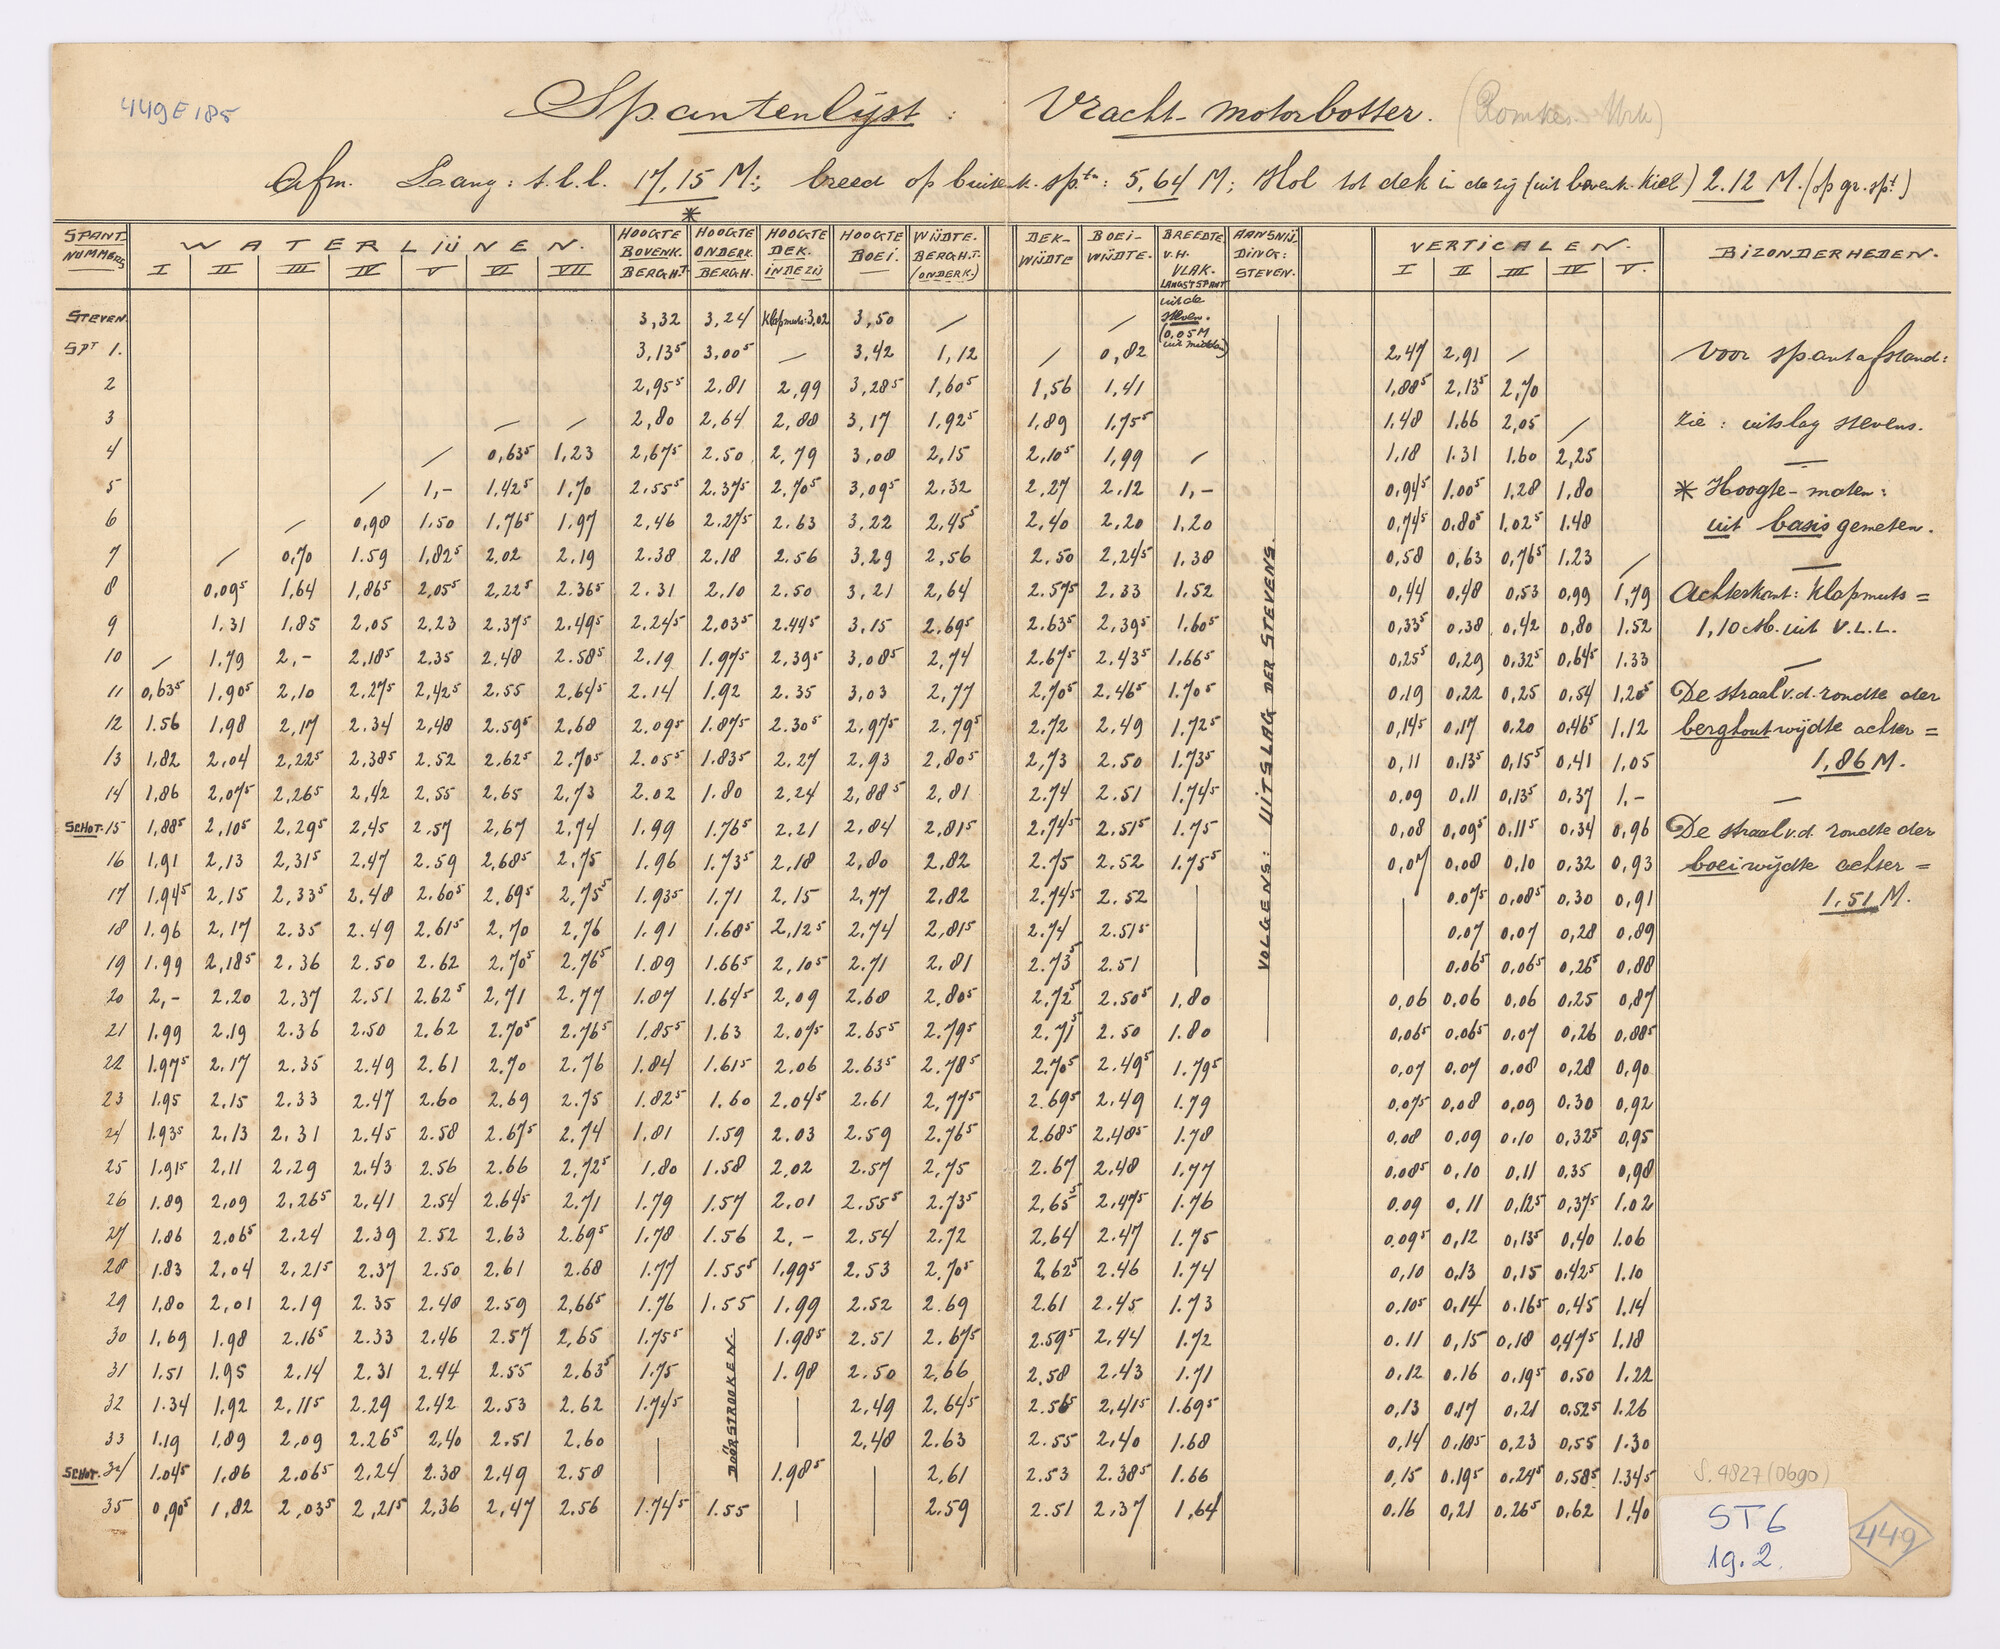 449E185
Spantenlijst: Vracht-motorbotter. (Romkes Urk)
Afm. Lang: t.l.l. 17,15 M:; breed op buitenk. sptn: 5,64 M; Hol tot dek in de zij (uit bovenk. Kiel) 2.12 M. (op gr. spt)
SPANT-NUMMERS | WATERLIJNEN. I II III IV V VI VII | HOOGTE BOVENK. BERGHT | * HOOGTE ONDERK. BERGH. | HOOGTE DEK. IN DE ZIJ | HOOGTE BOEI. | WIJDTE. BERGHT. (ONDERK.) | DEK-WIJDTE | BOEI-WIJDTE. | BREEDTE V.H. VLAK. LANGST SPANT | AANSNIJDING: STEVEN. | VERTICALEN. I II III IV V. | BIZONDERHEDEN.
STEVEN. 3,32 3,24 Klapmuts: 3,02 3,50 / / uit de steven. (0,05 M uit midden)
SPT 1. 3,13⁵ 3,00⁵ / 3,42 1,12 / 0,82 2,47 2,91 /
2 2,95⁵ 2,81 2,99 3,28⁵ 1,60⁵ 1,56 1,41 1,88⁵ 2,13⁵ 2,70
3 / / 2,80 2,64 2,88 3,17 1,92⁵ 1,89 1,75⁵ 1,48 1,66 2,05 /
4 / 0,63⁵ 1,23 2,67⁵ 2.50 2,79 3,08 2,15 2,10⁵ 1,99 / 1,18 1.31 1,60 2,25
5 / 1,- 1,42⁵ 1,70 2.55⁵ 2.37⁵ 2.70⁵ 3,09⁵ 2.32 2,27 2.12 1,- 0,94⁵ 1.00⁵ 1,28 1,80
6 / 0,98 1.50 1,76⁵ 1,97 2,46 2.27⁵ 2.63 3,22 2,45⁵ 2,40 2,20 1.20 0,74⁵ 0,80⁵ 1,02⁵ 1.48
7 / 0,70 1.59 1,82⁵ 2.02 2.19 2.38 2.18 2.56 3,29 2,56 2.50 2,24⁵ 1,38 0,58 0,63 0,76⁵ 1.23 /
8 0,09⁵ 1,64 1,86⁵ 2,05⁵ 2,22⁵ 2.36⁵ 2.31 2,10 2.50 3,21 2,64 2.57⁵ 2.33 1.52 0,44 0,48 0,53 0,99 1,79
9 1.31 1,85 2,05 2,23 2.37⁵ 2.49⁵ 2.24⁵ 2,03⁵ 2.44⁵ 3,15 2,69⁵ 2.63⁵ 2,39⁵ 1.60⁵ 0,33⁵ 0,38 0,42 0,80 1.52
10 / 1.79 2,- 2,18⁵ 2.35 2,48 2.58⁵ 2.19 1.97⁵ 2,39⁵ 3,08⁵ 2,74 2.67⁵ 2,43⁵ 1,66⁵ 0,25⁵ 0,29 0,32⁵ 0,64⁵ 1.33
11 0,63⁵ 1,90⁵ 2,10 2.27⁵ 2,42⁵ 2.55 2,64⁵ 2.14 1.92 2.35 3,03 2,77 2,70⁵ 2.46⁵ 1.70⁵ 0,19 0,22 0,25 0,54 1,20⁵
12 1.56 1,98 2,17 2.34 2,48 2.59⁵ 2,68 2.09⁵ 1.87⁵ 2.30⁵ 2,97⁵ 2.79⁵ 2.72 2,49 1,72⁵ 0,14⁵ 0,17 0,20 0,46⁵ 1,12
13 1,82 2,04 2,22⁵ 2,38⁵ 2.52 2,62⁵ 2.70⁵ 2.05⁵ 1.83⁵ 2.27 2.93 2,80⁵ 2,73 2.50 1.73⁵ 0,11 0,13⁵ 0,15⁵ 0,41 1.05
14 1,86 2,07⁵ 2,26⁵ 2,42 2.55 2,65 2,73 2.02 1.80 2,24 2,88⁵ 2,81 2.74 2.51 1.74⁵ 0,09 0,11 0,13⁵ 0,37 1,-
SCHOT. 15 1,88⁵ 2,10⁵ 2.29⁵ 2,45 2.57 2,67 2,74 1.99 1.76⁵ 2.21 2,84 2,81⁵ 2,74⁵ 2.51⁵ 1.75 0,08 0,09⁵ 0,11⁵ 0,34 0,96
16 1,91 2,13 2,31⁵ 2,47 2.59 2,68⁵ 2,75 1.96 1.73⁵ 2,18 2,80 2,82 2.75 2.52 1.75⁵ 0,07 0,08 0,10 0,32 0,93
17 1,94⁵ 2,15 2,33⁵ 2.48 2.60⁵ 2.69⁵ 2,75⁵ 1.93⁵ 1.71 2,15 2,77 2,82 2.74⁵ 2.52 | | 0.07⁵ 0,08⁵ 0,30 0,91
18 1.96 2,17 2.35 2.49 2,61⁵ 2,70 2,76 1.91 1.68⁵ 2,12⁵ 2,74 2,81⁵ 2.74 2.51⁵ | | 0,07 0,07 0,28 0,89
19 1.99 2,18⁵ 2.36 2.50 2.62 2,70⁵ 2.76⁵ 1.89 1.66⁵ 2,10⁵ 2.71 2,81 2.73⁵ 2.51 | | 0,06⁵ 0,06⁵ 0,26⁵ 0,88
20 2,- 2.20 2,37 2.51 2.62⁵ 2,71 2.77 1.87 1.64⁵ 2,09 2.68 2,80⁵ 2,72⁵ 2.50⁵ 1,80 0,06 0,06 0,06 0,25 0,87
21 1,99 2.19 2.36 2.50 2,62 2.70⁵ 2.76⁵ 1,85⁵ 1.63 2.07⁵ 2.65⁵ 2.79⁵ 2.71⁵ 2.50 1.80 0,06⁵ 0,06⁵ 0,07 0,26 0,88⁵
22 1.97⁵ 2,17 2.35 2.49 2.61 2,70 2.76 1.84 1.61⁵ 2.06 2.63⁵ 2.78⁵ 2.70⁵ 2.49⁵ 1.79⁵ 0,07 0,07 0,08 0,28 0,90
23 1.95 2,15 2.33 2.47 2.60 2.69 2.75 1.82⁵ 1.60 2,04⁵ 2.61 2,77⁵ 2.69⁵ 2.49 1.79 0,07⁵ 0,08 0,09 0.30 0,92
24 1.93⁵ 2,13 2,31 2.45 2.58 2.67⁵ 2,74 1,81 1.59 2.03 2.59 2.76⁵ 2.68⁵ 2,48⁵ 1.78 0,08 0,09 0,10 0,32⁵ 0,95
25 1.91⁵ 2,11 2,29 2.43 2.56 2.66 2,72⁵ 1,80 1.58 2,02 2.57 2,75 2.67 2,48 1.77 0,08⁵ 0,10 0,11 0.35 0,98
26 1.89 2,09 2,26⁵ 2,41 2.54 2.64⁵ 2.71 1.79 1.57 2.01 2.55⁵ 2.73⁵ 2,65⁵ 2,47⁵ 1.76 0.09 0,11 0,12⁵ 0,37⁵ 1.02
27 1.86 2,06⁵ 2.24 2.39 2.52 2.63 2.69⁵ 1.78 1.56 2,- 2.54 2.72 2,64 2.47 1.75 0.09⁵ 0,12 0,13⁵ 0,40 1.06
28 1.83 2,04 2,21⁵ 2.37 2.50 2.61 2.68 1.77 1.55⁵ 1,99⁵ 2.53 2,70⁵ 2,62⁵ 2.46 1.74 0,10 0,13 0,15 0,42⁵ 1.10
29 1,80 2,01 2.19 2.35 2.48 2.59 2,66⁵ 1.76 1.55 1,99 2.52 2.69 2.61 2.45 1.73 0,10⁵ 0,14 0.16⁵ 0,45 1.14
30 1,69 1.98 2.16⁵ 2.33 2,46 2.57 2,65 1.75⁵ 1.98⁵ 2.51 2.67⁵ 2.59⁵ 2,44 1.72 0.11 0,15 0,18 0,47⁵ 1.18
31 1.51 1,95 2.14 2.31 2.44 2.55 2.63⁵ 1.75 1.98 2.50 2,66 2,58 2.43 1.71 0,12 0.16 0,19⁵ 0.50 1.22
32 1.34 1,92 2,11⁵ 2.29 2.42 2.53 2.62 1.74⁵ | 2,49 2.64⁵ 2.56⁵ 2,41⁵ 1.69⁵ 0,13 0,17 0,21 0,52⁵ 1.26
33 1.19 1,89 2,09 2.26⁵ 2,40 2.51 2.60 | | 2,48 2.63 2.55 2,40 1.68 0,14 0,18⁵ 0,23 0,55 1.30
SCHOT. 34 1.04⁵ 1,86 2.06⁵ 2.24 2.38 2,49 2.58 | 1.98⁵ | 2,61 2.53 2.38⁵ 1.66 0,15 0.19⁵ 0,24⁵ 0,58⁵ 1.34⁵
35 0,90⁵ 1,82 2,03⁵ 2,21⁵ 2,36 2,47 2.56 1.74⁵ 1.55 | | 2.59 2.51 2,37 1,64 0.16 0,21 0,26⁵ 0,62 1,40
DOORSTROOKEN.
VOLGENS: UITSLAG DER STEVENS.
Voor spantafstand:
zie: uitslag stevens.
* Hoogte-maten:
uit basis gemeten.
Achterkant: Klapmuts =
1,10 M. uit V.L.L.
De straal v.d. rondte der
berghoutwijdte achter =
1,86 M.
De straal v.d. rondte der
boeiwijdte achter =
1,51 M.
S.4827 (0690)
ST6
19.2.
449